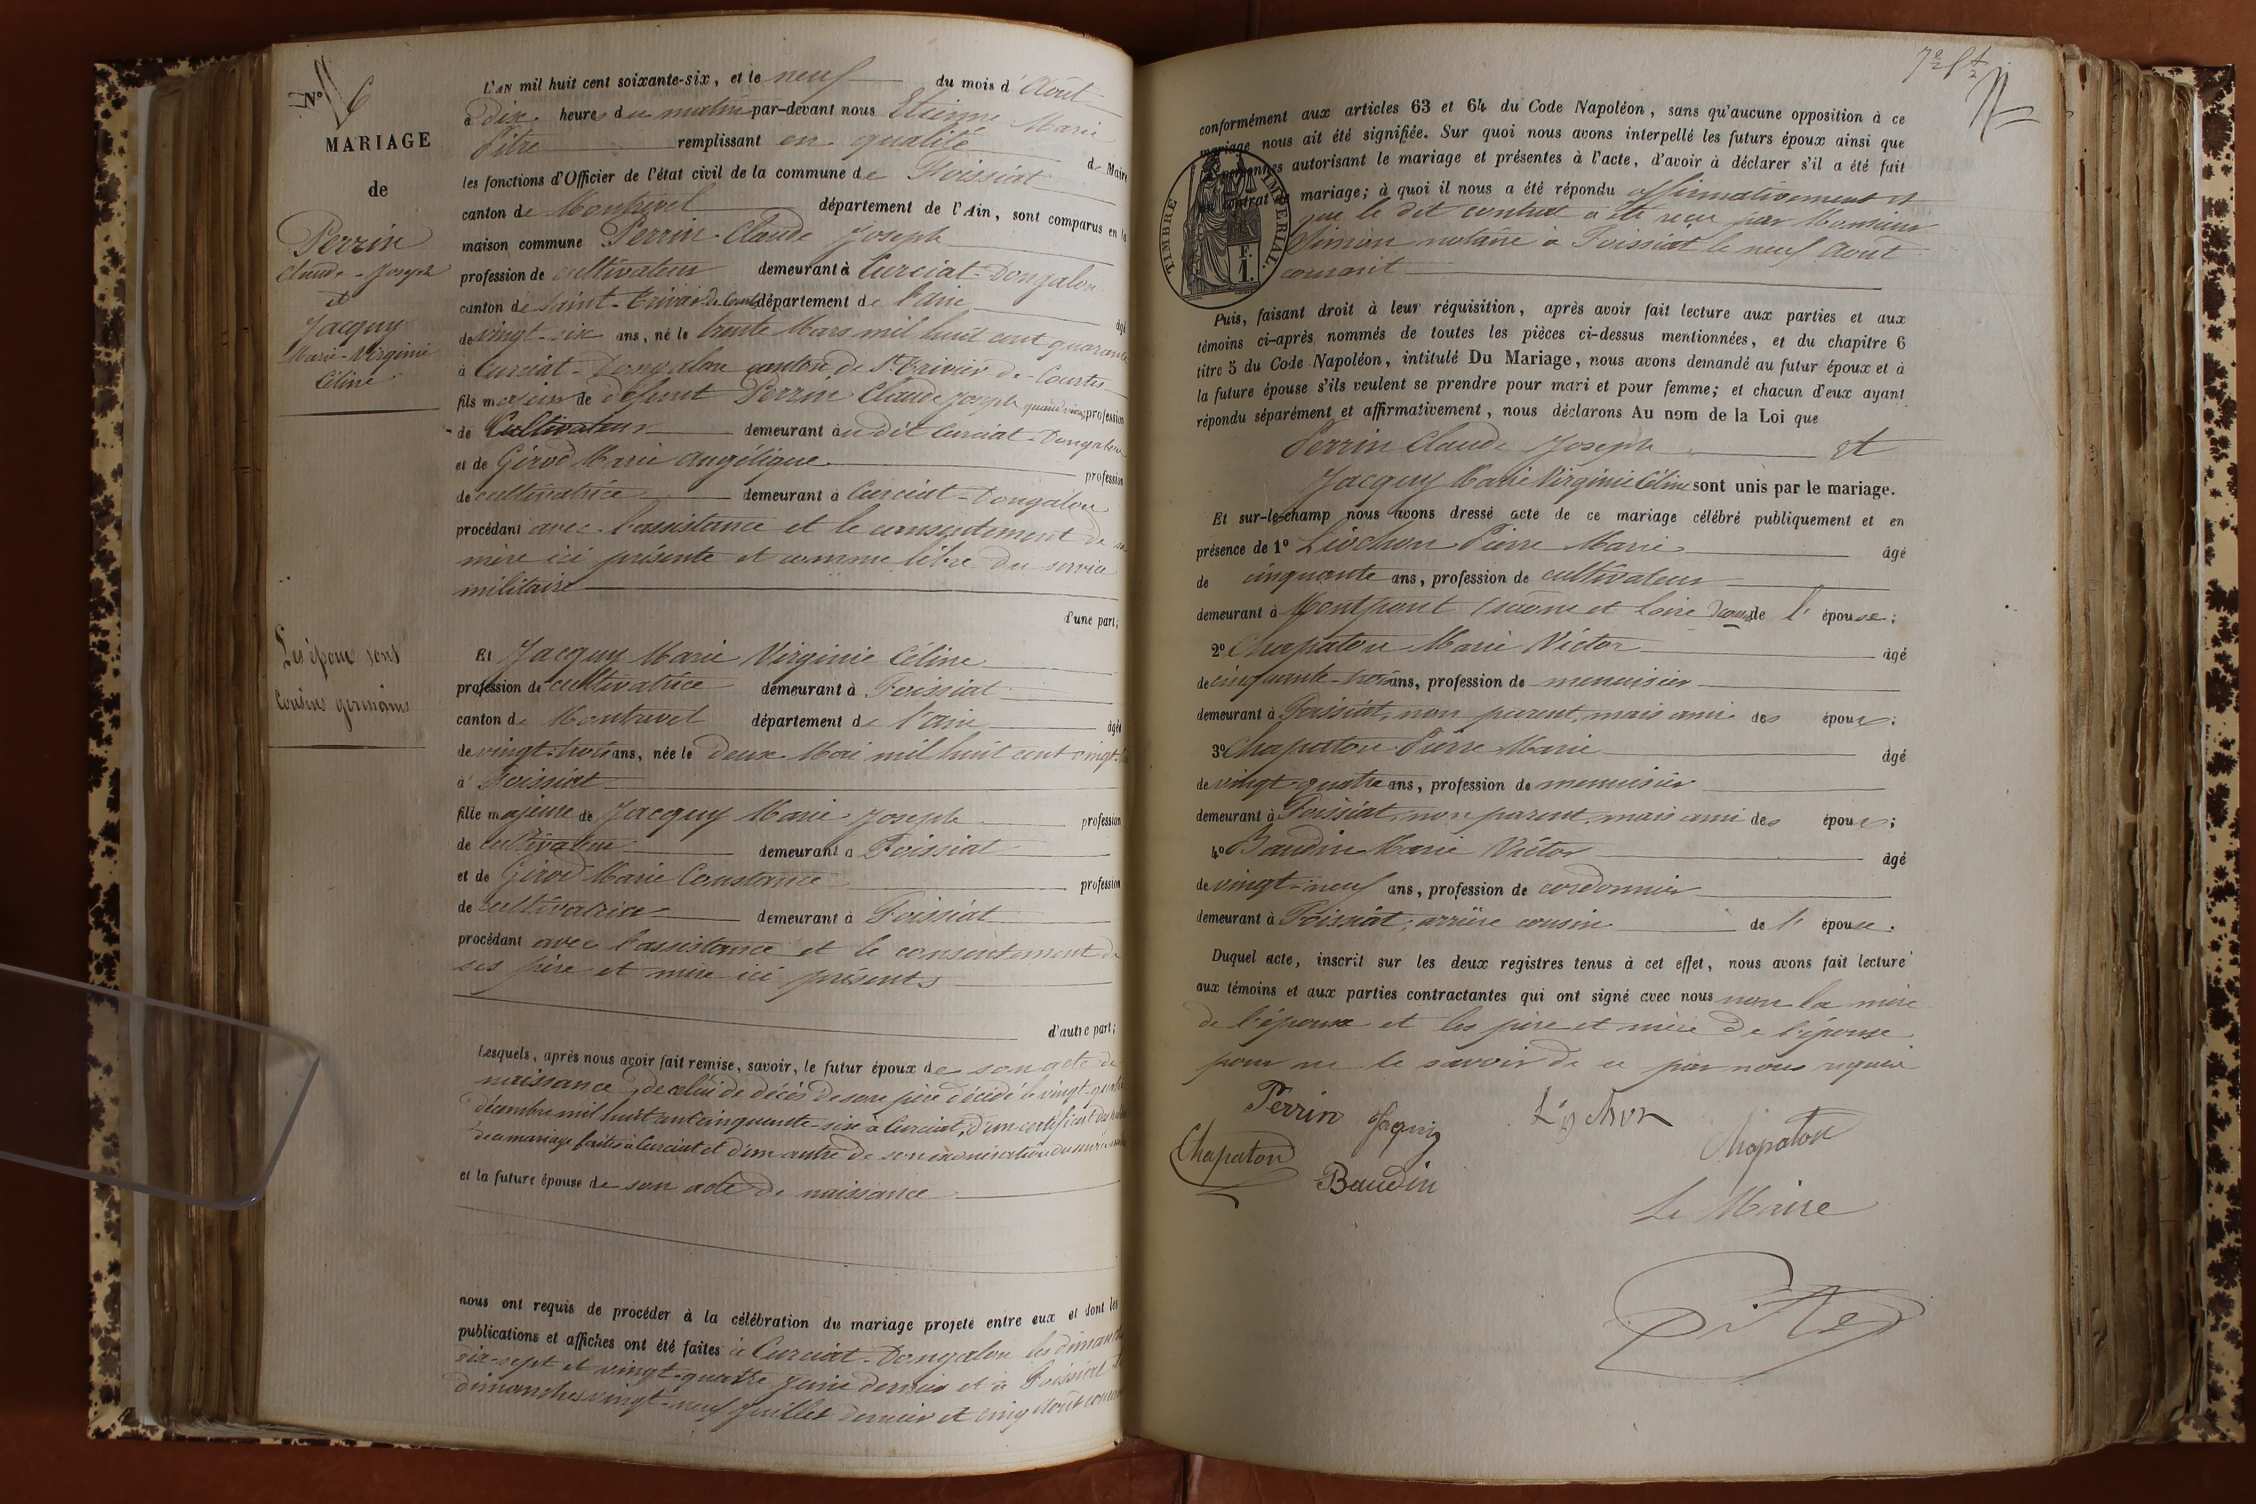 N° 6
MARIAGE
de
Perrin
Claude-Joseph
et
Jacquy
Marie-Virginie
Céline
Les époux sont
cousins germains
L'AN mil huit cent soixante-six, et le neuf du mois d'Août
à dix heures du matin par-devant nous Etienne Marie
Pitre remplissant en qualité de Maire
les fonctions d'Officier de l'état civil de la commune de Foissiat
canton de Montrevel département de l'Ain, sont comparus en la
maison commune Perrin Claude Joseph
profession de cultivateur demeurant à Curciat-Dongalon
canton de Saint-Trivier de Courtes département de l'ain âgé
de vingt-six ans, né le trente Mars mil huit cent quarante
à Curciat-Dongalon canton de St Trivier de Courtes
fils majeur de défunt Perrin Claude Joseph quand vivait profession
de Cultivateur demeurant au dit Curciat-Dongalon
et de Girod Marie Angélique profession
de cultivatrice demeurant à Curciat-Dongalon
procédant avec l'assistance et le consentement de sa
mère ici présente et comme libre du service
militaire
d'une part;
Et Jacquy Marie Virginie Céline
profession de cultivatrice demeurant à Foissiat
canton de Montrevel département de l'ain âgée
de vingt-trois ans, née le deux Mai mil huit cent vingt
à Foissiat
fille majeure de Jacquy Marie Joseph profession
de cultivateur demeurant à Foissiat
et de Girod Marie Constance profession
de cultivatrice demeurant à Foissiat
procédant avec l'assistance et le consentement de
ses père et mère ici présents
d'autre part;
Lesquels, après nous avoir fait remise, savoir, le futur époux de son acte de
naissance, de celui de décès de son père décédé le vingt-quatre
décembre mil huit cent cinquante-six à Curciat, d'un certificat de
de mariage faites à Curciat et d'un autre de son exonération du service
et la future épouse de son acte de naissance
nous ont requis de procéder à la célébration du mariage projeté entre eux et dont les
publications et affiches ont été faites à Curciat-Dongalon les dimanches
dix-sept et vingt-quatre juin dernier et à Foissiat les
dimanches vingt-neuf Juillet dernier et cinq Août courant
conformément aux articles 63 et 64 du Code Napoléon, sans qu'aucune opposition à ce
mariage nous ait été signifiée. Sur quoi nous avons interpellé les futurs époux ainsi que
les personnes autorisant le mariage et présentes à l'acte, d'avoir à déclarer s'il a été fait
un contrat de mariage; à quoi il nous a été répondu affirmativement et
que le dit contrat a été reçu par Monsieur
Simion notaire à Foissiat le neuf Août
courant
TIMBRE IMPÉRIAL.
F.
1
Puis, faisant droit à leur réquisition, après avoir fait lecture aux parties et aux
témoins ci-après nommés de toutes les pièces ci-dessus mentionnées, et du chapitre 6
titre 5 du Code Napoléon, intitulé Du Mariage, nous avons demandé au futur époux et à
la future épouse s'ils veulent se prendre pour mari et pour femme; et chacun d'eux ayant
répondu séparément et affirmativement, nous déclarons Au nom de la Loi que
Perrin Claude Joseph et
Jacquy Marie Virginie Céline sont unis par le mariage.
Et sur-le-champ nous avons dressé acte de ce mariage célébré publiquement et en
présence de 1° Livchon Pierre Marie âgé
de cinquante ans, profession de cultivateur
demeurant à Montpont (saône et Loire) de l'épouse;
2° Chapaton Marie Victor âgé
de cinquante-trois ans, profession de menuisier
demeurant à Foissiat, non parent, mais ami des époux;
3° Chapaton Pierre Marie âgé
de vingt-quatre ans, profession de menuisier
demeurant à Foissiat, non parent, mais ami des époux;
4° Baudin Marie Victor âgé
de vingt-neuf ans, profession de cordonnier
demeurant à Foissiat, arrière cousin de l'épouse.
Duquel acte, inscrit sur les deux registres tenus à cet effet, nous avons fait lecture
aux témoins et aux parties contractantes qui ont signé avec nous non la mère
de l'époux et les père et mère de l'épouse
pour ne le savoir de ce par nous requis
Perrin Jaquy Chapaton
Chapaton Baudin
Le Maire
Pitre